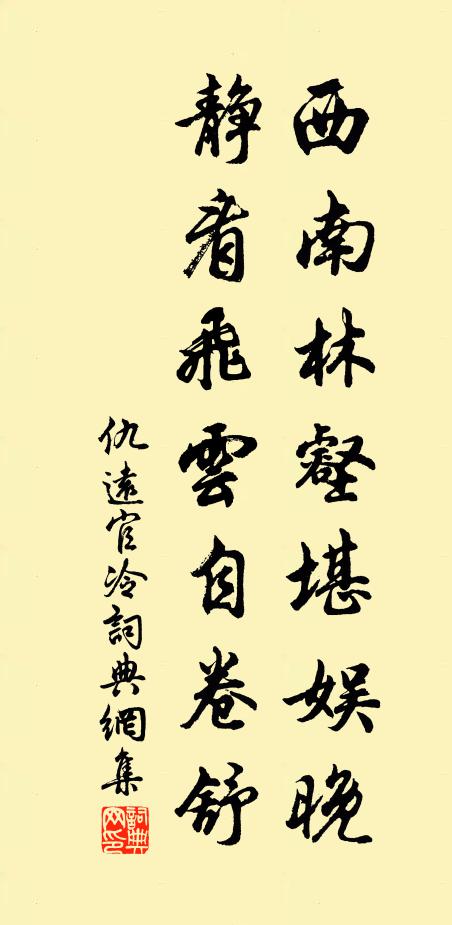 西南林壑堪娱晚
静看飛雲自卷舒
仇遠官冷詞典網集
詞典网印